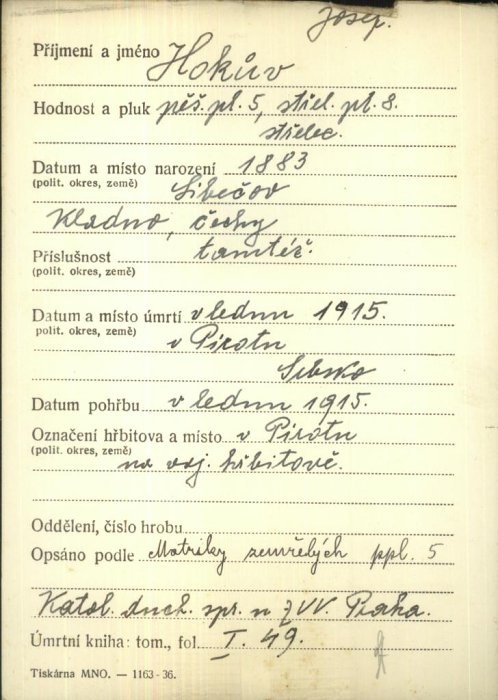 Josef.
Příjmení a jméno Hokův
Hodnost a pluk pěš. pl. 5, střel. pl. 8.
střelec.
Datum a místo narození 1883
(polit. okres, země) Libečov
Kladno, čechy
Příslušnost tamtéž.
(polit. okres, země)
Datum a místo úmrtí v lednu 1915.
polit. okres, země) v Pirotu
Srbsko
Datum pohřbu v lednu 1915.
Označení hřbitova a místo v Pirotu
(polit. okres, země) na voj. hřbitově.
Oddělení, číslo hrobu
Opsáno podle Matriky zemřelých ppl. 5
Katol. duch. spr. u ZVV. Praha.
Úmrtní kniha: tom., fol. I. 49.
Tiskárna MNO. — 1163-36.